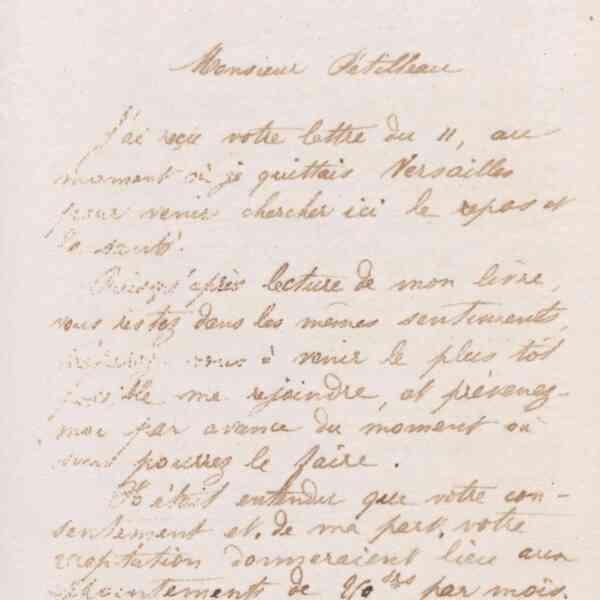 Monsieur Pétilleau
J'ai reçu votre lettre du 11, au
moment où je quittais Versailles
pour venir chercher ici le repos et
la santé.
après lecture de mon livre,
vous restez dans les mêmes sentiments,
à venir le plus tôt
possible me rejoindre, et prévenez-
moi par avance du moment où
vous pourrez le faire.
Il était entendu que votre con-
sentement et, de ma part, votre
acceptation donneraient lieu aux
appointements de par mois.